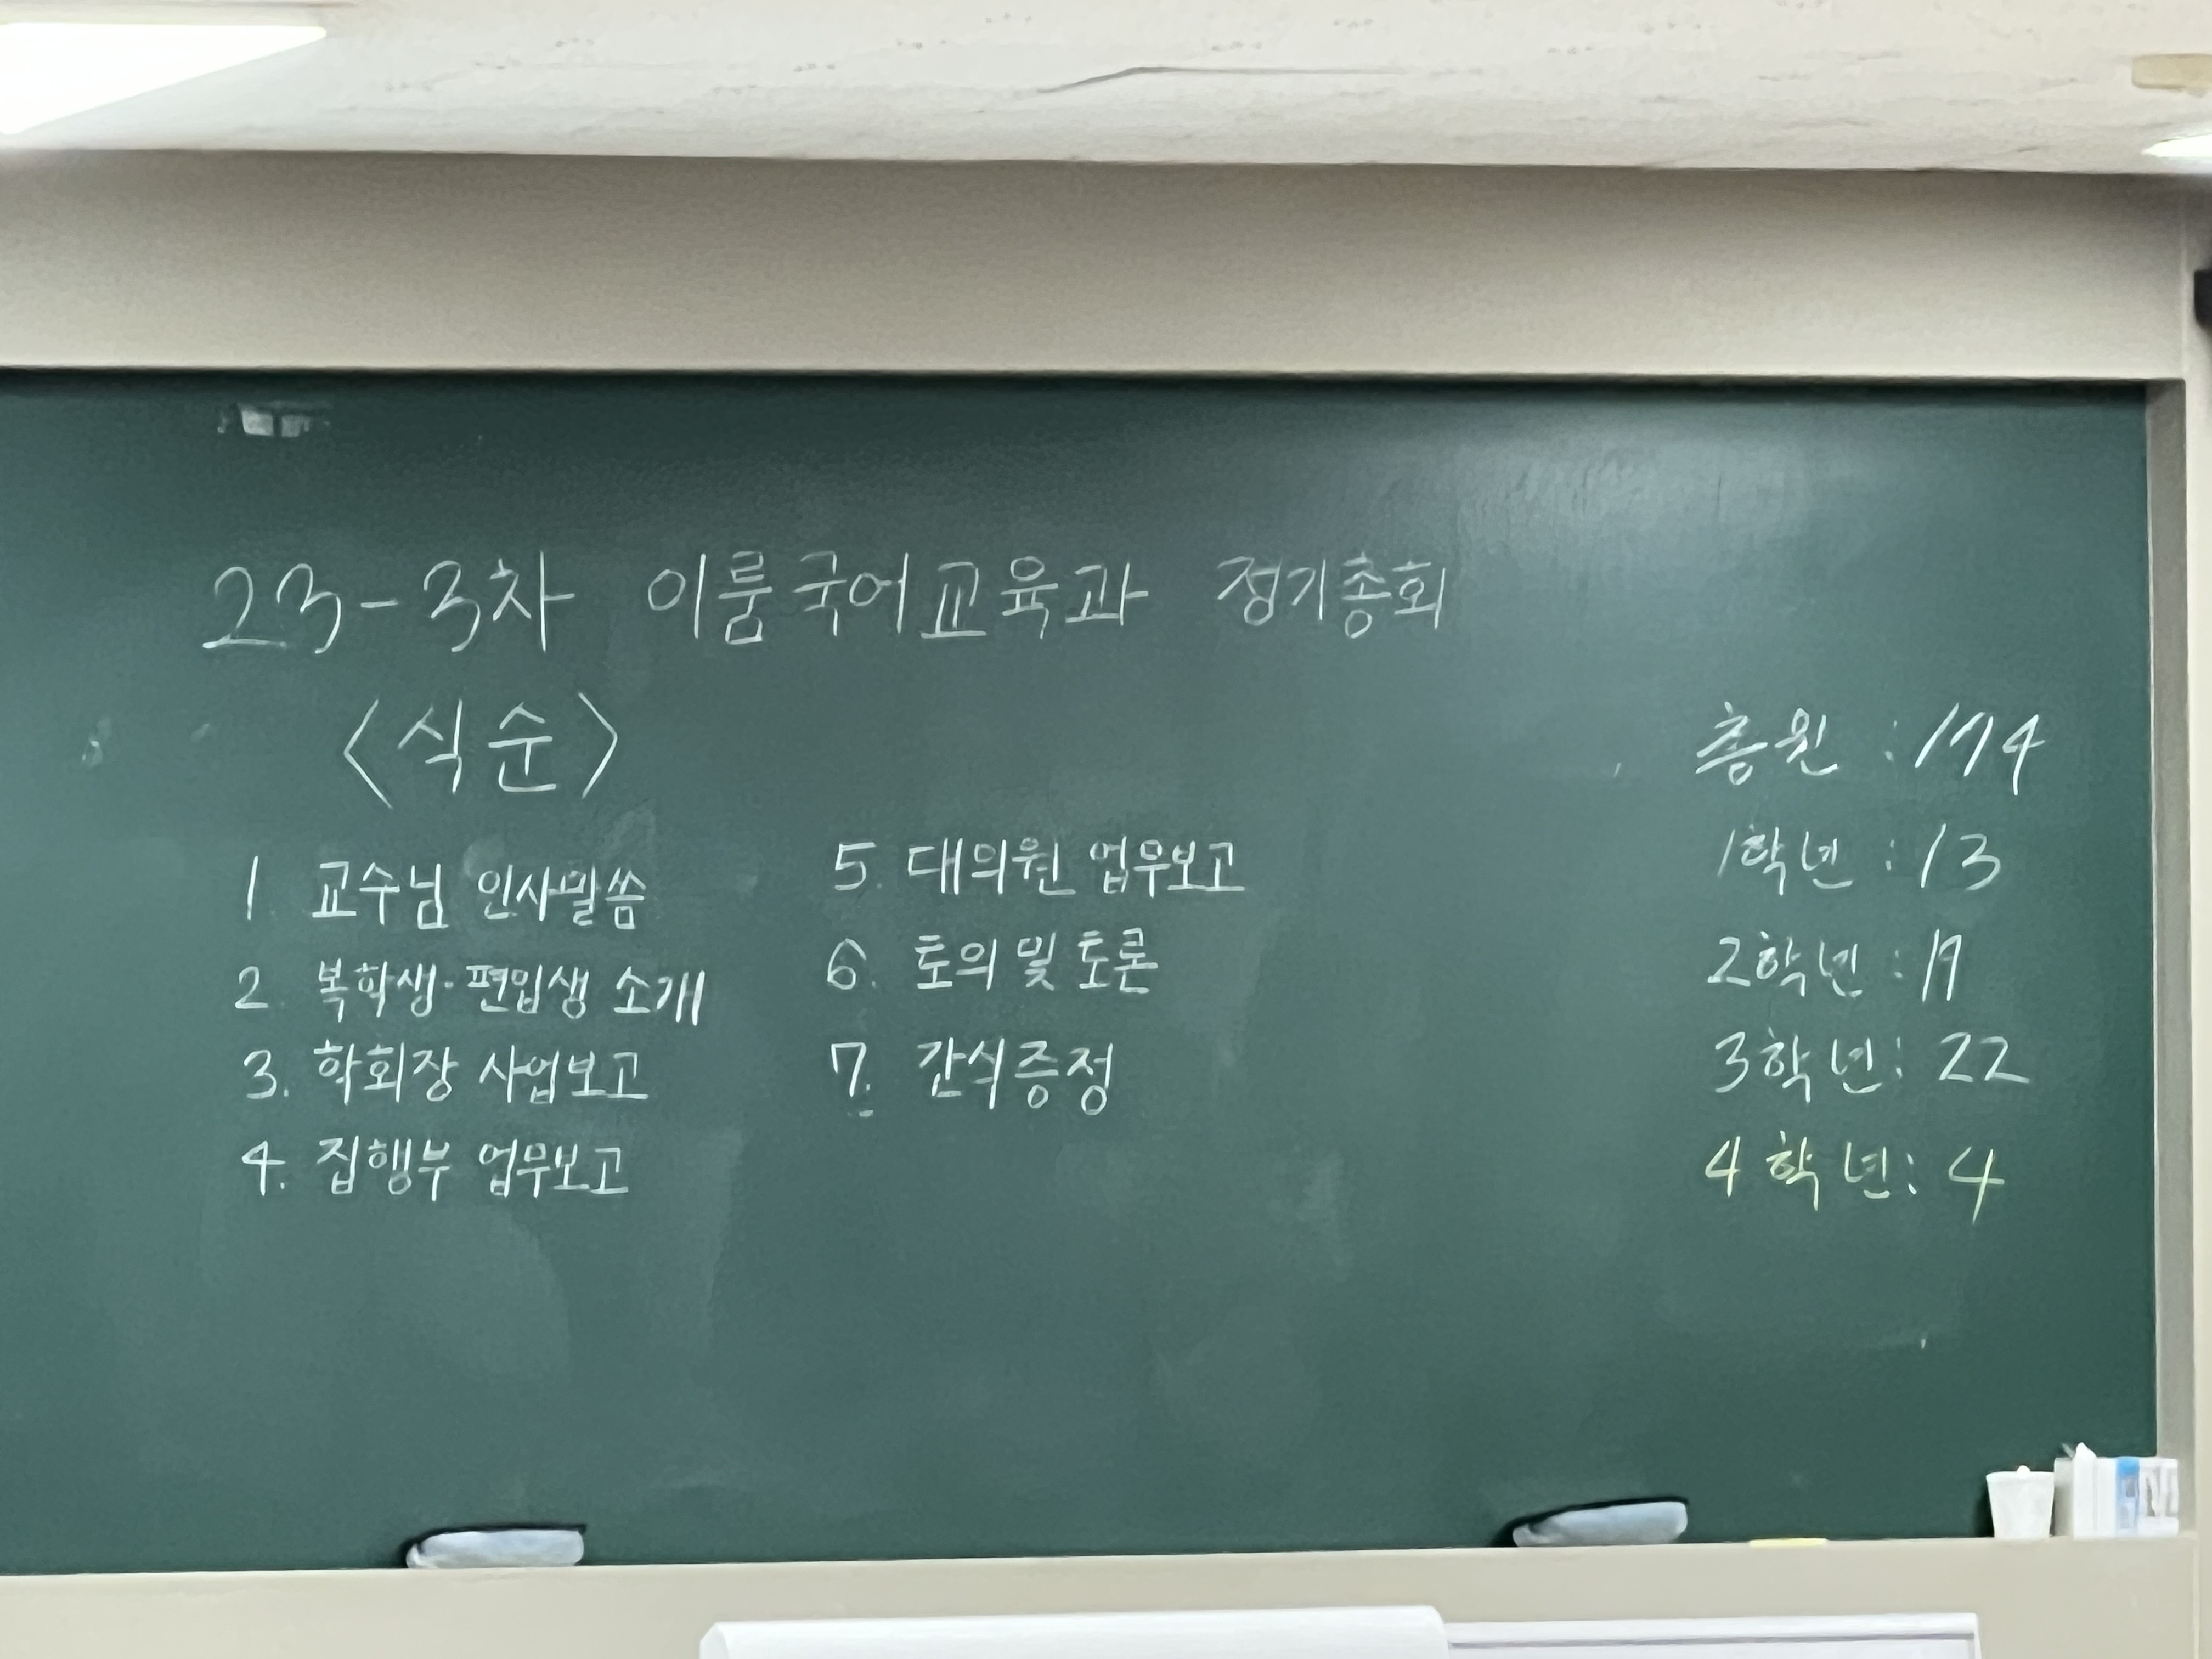 23-3차 이룸국어교육과 정기총회
<식순>
1 교수님 인사말씀
2. 복학생·편입생 소개
3. 학회장 사업보고
4. 집행부 업무보고
5. 대의원 업무보고
6. 토의 및 토론
7. 간식증정
총원 : 174
1학년 : 13
2학년 :
3학년 : 22
4학년 : 4